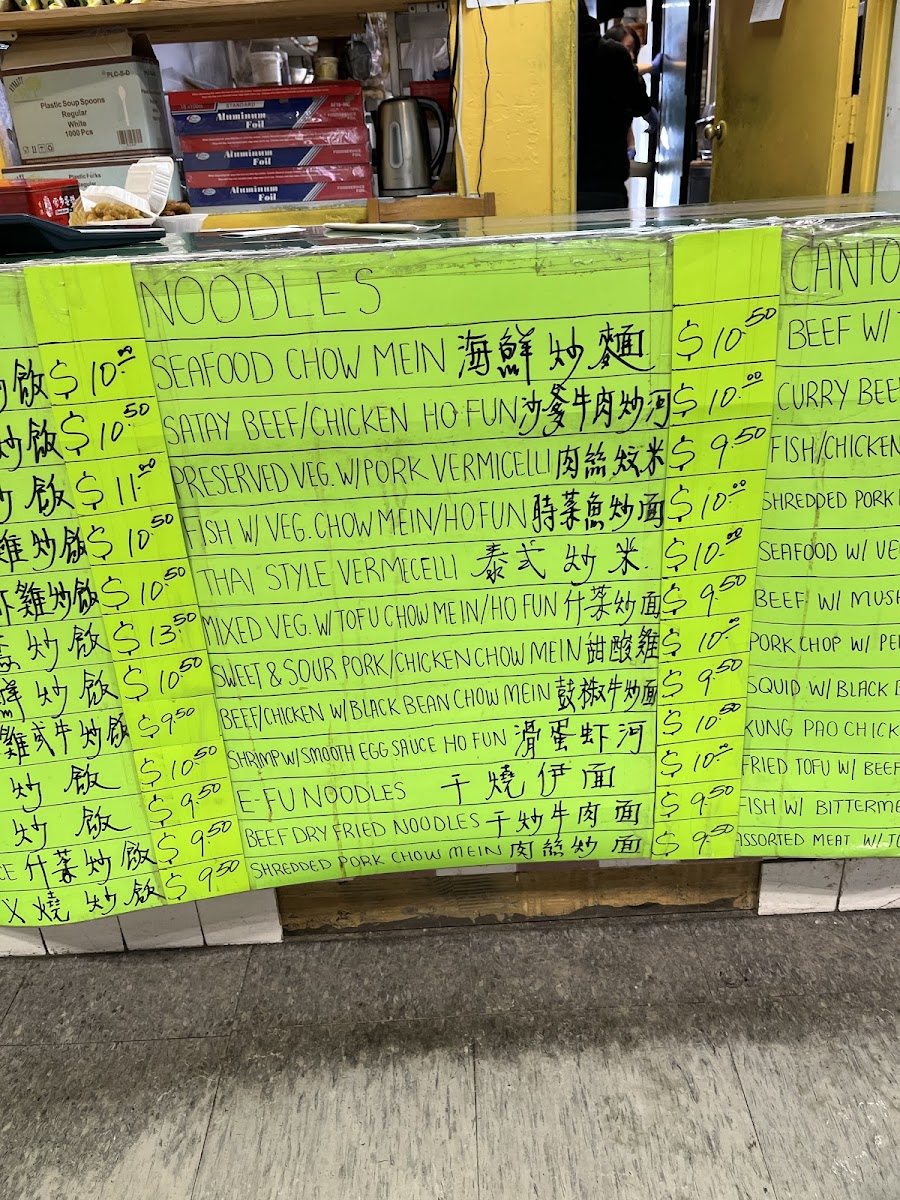 PLC-S-D
Plastic Soup Spoons
Regular
White
1000 Pcs
Plastic Forks
STANDARD
Aluminum
Foil
Aluminum
Foil
FOODSERVICE FOIL
Aluminum
Foil
FOODSERVICE FOIL
炒飯 $10.00
炒飯 $10.50
炒飯 $11.00
雞炒飯 $10.50
雞炒飯 $10.50
炒飯 $13.50
炒飯 $10.50
雞或牛炒飯 $9.50
炒飯 $10.50
炒飯 $9.50
什菜炒飯 $9.50
燒炒飯 $9.50
NOODLES
SEAFOOD CHOW MEIN 海鮮炒麵 $10.50
SATAY BEEF/CHICKEN HO FUN 沙爹牛肉炒河 $10.00
PRESERVED VEG. W/PORK VERMICELLI 肉絲炆米 $9.50
FISH W/ VEG. CHOW MEIN/HO FUN 時菜魚炒面 $10.00
THAI STYLE VERMECELLI 泰式炒米 $10.00
MIXED VEG. W/TOFU CHOW MEIN/HO FUN 什菜炒面 $9.50
SWEET & SOUR PORK/CHICKEN CHOW MEIN 甜酸雞 $10.00
BEEF/CHICKEN W/BLACK BEAN CHOW MEIN 鼓椒牛炒面 $9.50
SHRIMP W/ SMOOTH EGG SAUCE HO FUN 滑蛋虾河 $10.50
E-FU NOODLES 干燒伊面 $10.00
BEEF DRY FRIED NOODLES 干炒牛肉面 $9.50
SHREDDED PORK CHOW MEIN 肉絲炒面 $9.50
CANTO
BEEF W/
CURRY BEE
FISH/CHICKEN
SHREDDED PORK
SEAFOOD W/ VE
BEEF W/ MUSH
PORK CHOP W/ PE
SQUID W/ BLACK B
KUNG PAO CHICK
FRIED TOFU W/ BEEF
FISH W/ BITTERME
ASSORTED MEAT W/ TO